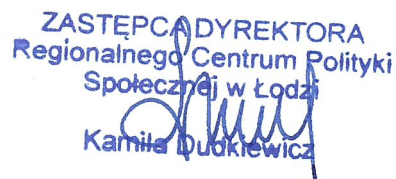 ZASTĘPCA DYREKTORA
Regionalnego Centrum Polityki
Społecznej w Łodzi
Kamila Dudkiewicz